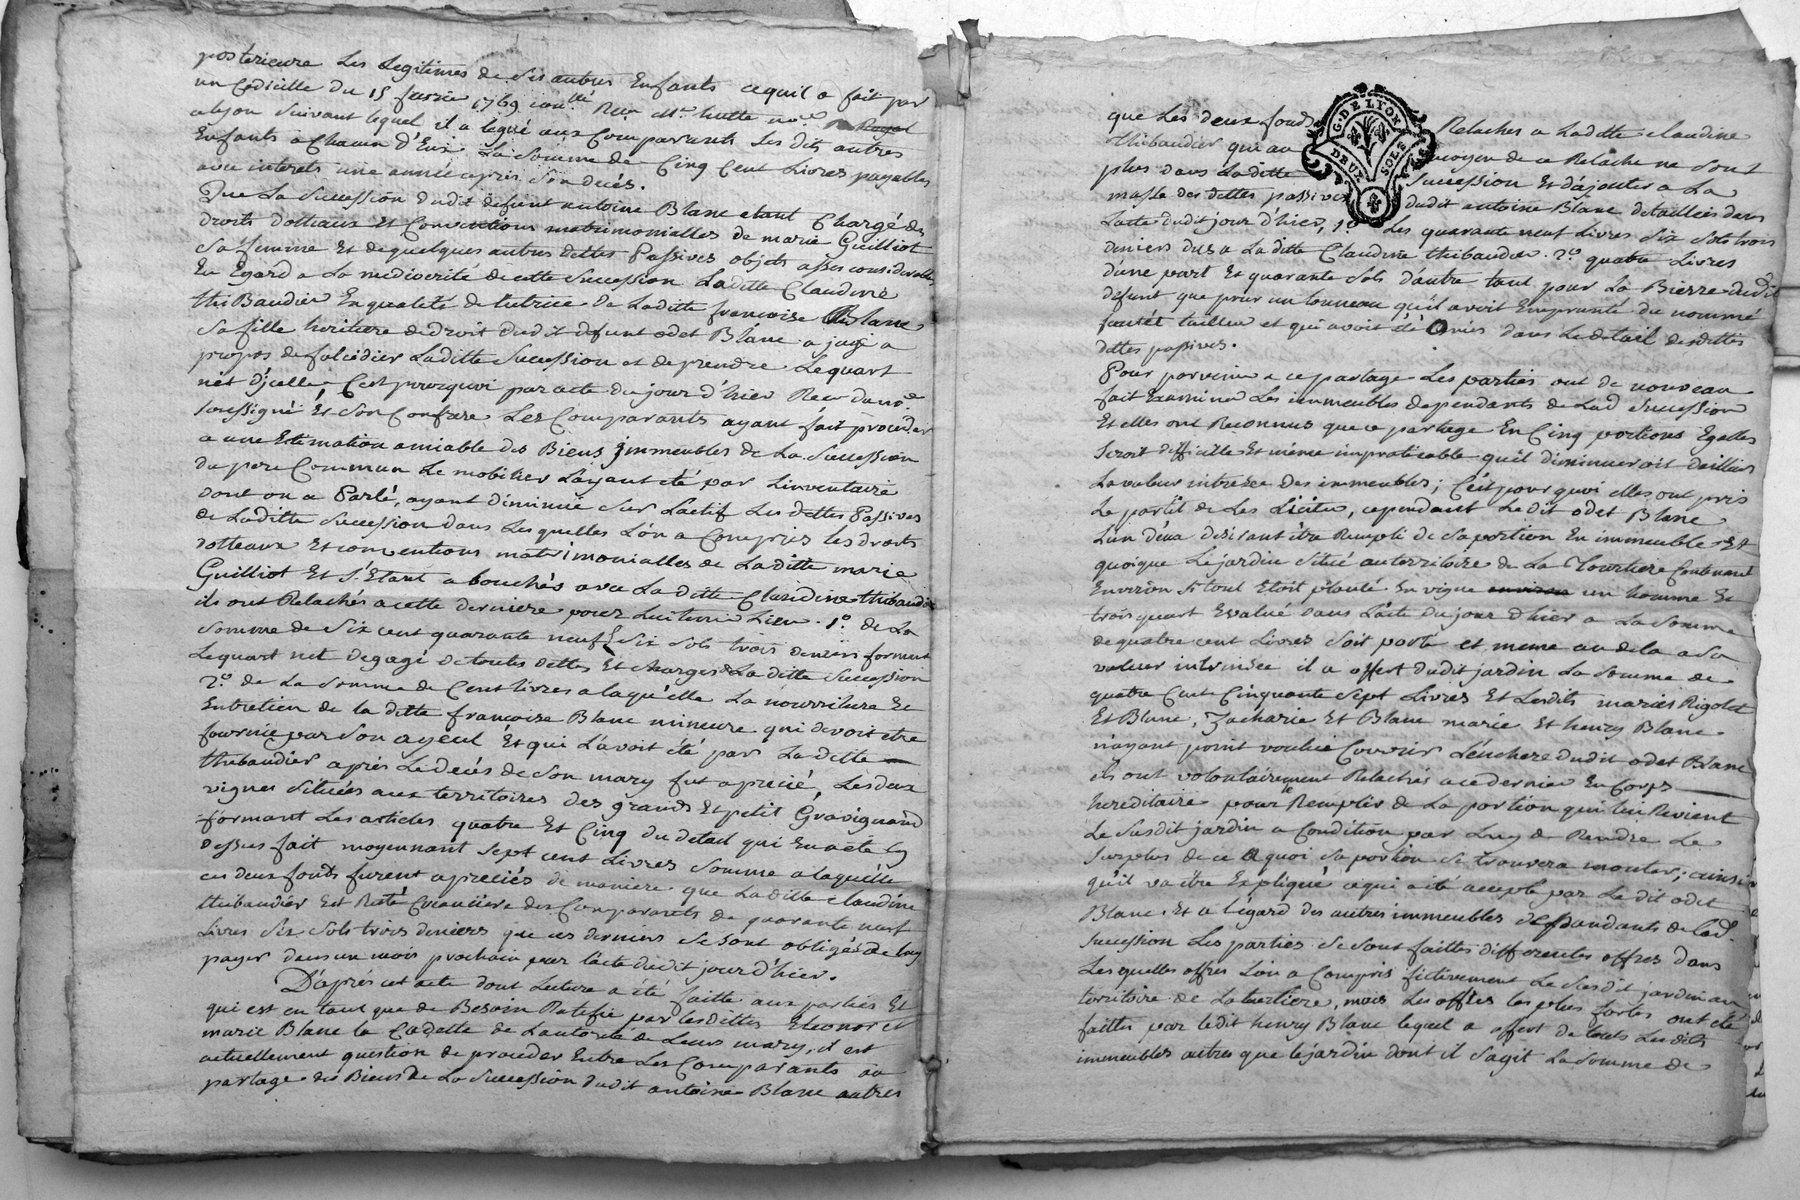 posterieure Les Legitimes de Ses autres Enfants cequil a fait par
un Codicille du 15 fevrie 1769 Reçu Me hutte nore
alyon Suivant lequel il a legué aux Comparants Les dits autres
Enfants a Chacun d'Eux La Somme de Cinq Cent Livres payables
avec interets une année après Son decés.
Que La Succession dudit defunt antoine Blanc etant Chargé des
droits dotteaux Et Conventions matrimonialles de marie Guilliot
Sa femme Et de quelques autres dettes Passives objets asses considerables
Eu Egard a La mediocrité de cette Succession Laditte Claudine
thiBaudier En qualité de tutrice de Laditte francoise Blanc
Sa fille heritiere de droit dudit defunt odet Blanc a jugé a
propos de falcidier Laditte Succession et de prendre Lequart
net d'jcelle, C'est pourquoi par acte du jour d'hier Recu du nore
Soussigné Et Son Confrere Les Comparants ayant fait proceder
a une Estimation amiable des Biens jmmeubles de La Succession
du pere Commun Le mobilier L'ayant été par Linventaire
dont on a Parlé, ayant diminué Sur Lactif Les dettes Passives
de Laditte Succession dans Les quelles L'on a Compris les droits
dotteaux Et conventions matrimonialles de Laditte marie
Guilliot Et S'Etant abouchés avec La ditte Claudine thibaudier
ils ont Relachés a cette derniere pour Lui tenir Lieu . 1o. de La
Somme de Six cent quarante neuf £ Six Sols trois deniers formant
Lequart net degagé de toutes dettes Et charges de La ditte Succession
2o. de La Somme de Cent livres a laquelle La nourriture Et
Entretien de la ditte francoise Blanc mineure qui devoit etre
fournie par Son ayeul Et qui L'avoit été par La ditte
thibaudier après Le Decés de Son mary fut aprecié, Les deux
vignes Situées aux territoires des grands Et petit Gravignand
formant Les articles quatre Et Cinq du detail qui En a été cy
dessus fait moyennant Sept cent Livres Somme a laquelle
ces deux fonds furent apreciés de maniere que Laditte Claudine
thibaudier Est Resté Creanciere des Comparants de quarante neuf
Livres Six Sols trois deniers que ces derniers Se Sont obligés de luy
payer dans un mois prochain par l'acte dudit jour d'hier.
D'après cet acte dont Lecture a été faitte aux parties Et
qui est en tant que de Besoin Ratifié par lesdittes Eleonor et
marie Blanc la Cadette de Lautorité de Leurs marys, il est
actuellement question de proceder Entre Les Comparants au
partage des Biens de La Succession dudit antoine Blanc autres
que Les deux fonds Relachés a Laditte Claudine
Thibaudier qui au moyen de ce Relache ne Sont
plus dans Laditte Succession Et d'ajouter a La
masse des dettes passives dudit antoine Blanc detaillées dans
Lacte dudit jour d'hier, 1o Les quarante neuf Livres Six Sols trois
deniers dus a La ditte Claudine thibaudier . 2o. quatre Livres
d'une part Et quarante Sols d'autre tant pour La Bierre dudit
defunt que pour un tonneau qu'il avoit Emprunté du nommé
tailleur et qui avoit été Omis dans Le detail desdittes
dettes passives.
Pour parvenir a ce partage Les parties ont de nouveau
fait Examiner Les immeubles dependants de Lad Succession
Et elles ont Reconnus que ce partage En Cinq portions Egalles
Seroit difficille Et même impraticable quil diminueroit dailleurs
La valeur intrinseq des immeubles; C'est pourquoi elles ont pris
Le partit de Les Liciter, cependant Ledit odet Blanc
Lun d'eux desirant être Rempli de Sa portion En immeuble Et
quoique Le jardin Situé au territoire de La Tourtiere Contenant
Environ Si tout Etoit planté En vigne un homme Et
trois quart Evalué dans L'acte du jour d'hier a La Somme
de quatre cent Livres Soit porté et meme au dela a Sa
valeur intrinseq il a offert dudit jardin La Somme de
quatre Cent Cinquante Sept Livres Et Lesdits mariés Rigolet
Et Blanc, Zacharie Et Blanc marie Et henry Blanc
n'ayant point voulu Couvrir L'enchere dudit odet Blanc
ils ont volontairement Relachés a ce dernier En Corps
hereditaire pour le Remplir de La portion qui lui Revient
Le Susdit jardin a Condition par Luy de Rendre Le
Surplus de ce a quoi Sa portion Se trouvera monter; ainsi
qu'il va être Expliqué cequi a été accepté par Le dit odet
Blanc. Et a l'égard des autres immeubles dépandants de lad.
Succession Les parties Se Sont faittes differentes offres dans
Les quelles offres L'on a Compris fictivement Le Susdit jardin au
territoire de La turtiere, mais Les offres les plus fortes ont été
faittes par ledit henry Blanc lequel a offert de touts Les dits
immeubles autres que le jardin dont il S'agit La Somme de
G. DE LYON
DEUX SOLS